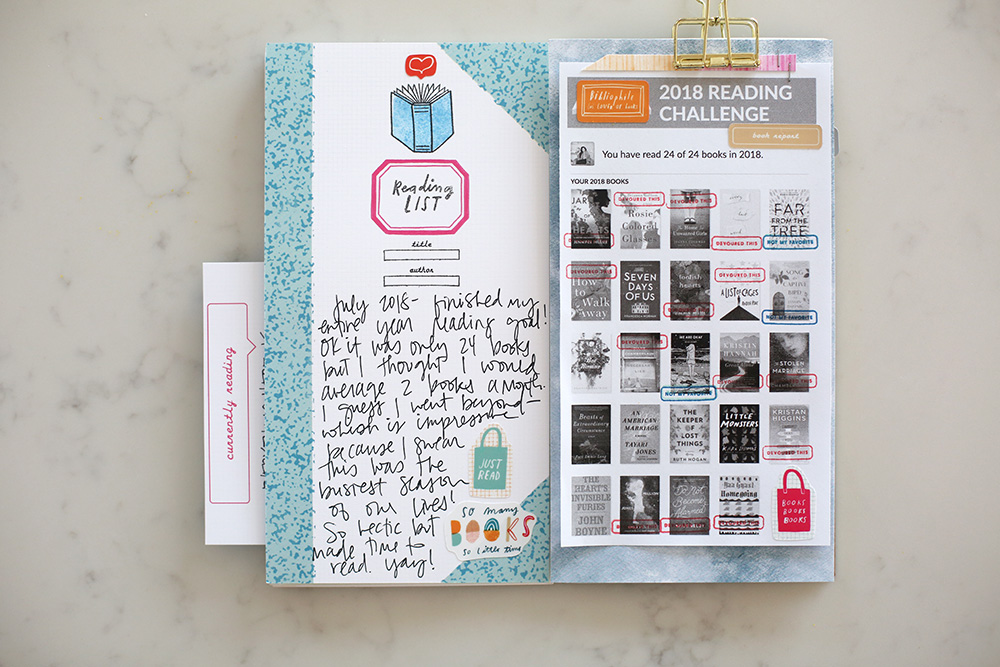 currently reading
Reading
LIST
title
author
July 2018- Finished my
entire year reading goal!
OK it was only 24 books
but I thought I would
average 2 books a month.
I guess I went beyond-
which is impressive
because I swear
this was the
busiest season
of our lives!
So hectic but
made time to
read. yay!
JUST
READ
so many
BOOKS
so little time
Bibliophile
a LOVER OF books
2018 READING
CHALLENGE
book report
You have read 24 of 24 books in 2018.
YOUR 2018 BOOKS
JAR
OF
HEARTS
JENNIFER HILLIER
DEVOURED THIS
Rosie
Colored
Glasses
DEVOURED THIS
DEVOURED THIS
FAR
FROM THE
TREE
NOT MY FAVORITE
DEVOURED THIS
How to
Walk
Away
SEVEN
DAYS
OF US
hearts
DEVOURED THIS
A LIST OF CAGES
SONG
CAPTIVE
BIRD
NOT MY FAVORITE
DEVOURED THIS
WE ARE OKAY
NOT MY FAVORITE
KRISTIN
HANNAH
STOLEN
MARRIAGE
Beasts of
Extraordinary
Circumstance
AN
AMERICAN
MARRIAGE
TAYARI
JONES
THE
KEEPER
OF
LOST
THINGS
RUTH HOGAN
LITTLE
MONSTERS
KRISTAN
HIGGINS
DEVOURED THIS
THE
HEART'S
INVISIBLE
FURIES
JOHN
BOYNE
Do Not
Become
Alarmed
Yaa Gyasi
Homegoing
BOOKS
BOOKS
BOOKS